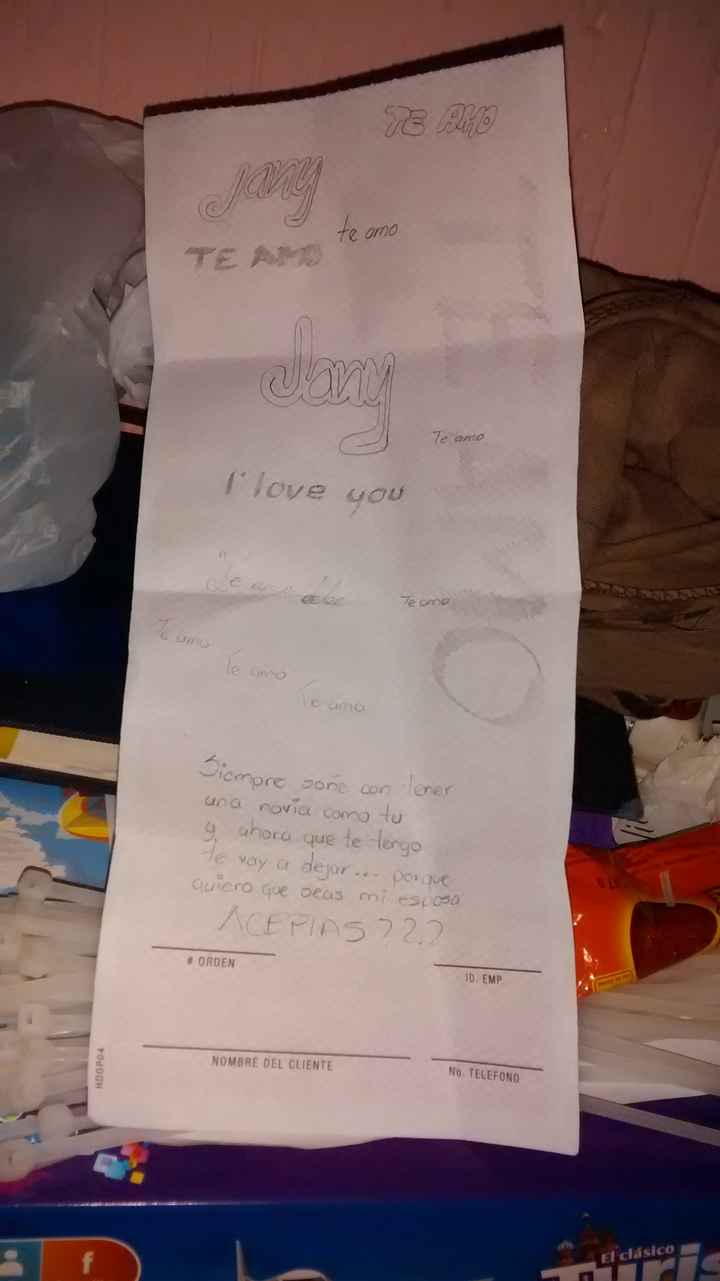 TE AMO
Jany
te amo
TE AMO
Jany
Te amo
I love you
Te amo
TE AMO
Te amo
Te amo
Te amo
Siempre soñe con tener
una novia como tu
y ahora que te tengo
te voy a dejar... porque
quiero que seas mi esposa
ACEPTAS???
# ORDEN
ID. EMP
NOMBRE DEL CLIENTE
No. TELEFONO
HDGP04
El clásico
f